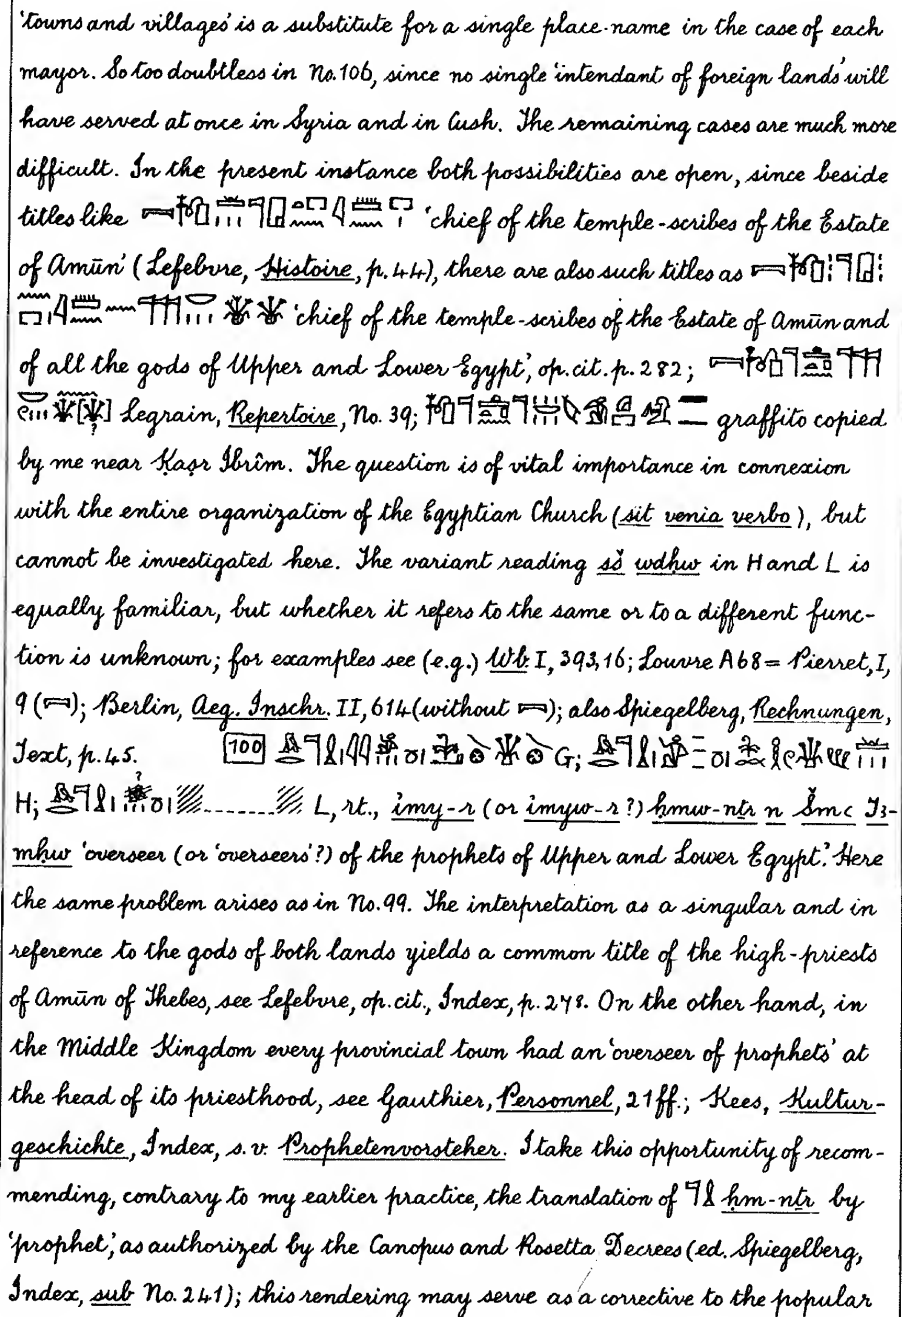 'towns and villages' is a substitute for a single place-name in the case of each
mayor. So too doubtless in No. 106, since no single 'intendant of foreign lands' will
have served at once in Syria and in Cush. The remaining cases are much more
difficult. In the present instance both possibilities are open, since beside
titles like 'chief of the temple-scribes of the Estate
of Amūn' (Lefebvre, Histoire, p. 44), there are also such titles as
'chief of the temple-scribes of the Estate of Amūn and
of all the gods of Upper and Lower Egypt', op. cit. p. 282;
Legrain, Repertoire, No. 39; graffito copied
by me near Ḳaṣr Ibrîm. The question is of vital importance in connexion
with the entire organization of the Egyptian Church (sit venia verbo), but
cannot be investigated here. The variant reading sš wdḥw in H and L is
equally familiar, but whether it refers to the same or to a different func-
tion is unknown; for examples see (e.g.) Wb. I, 393,16; Louvre A 68 = Pierret, I,
9 ( ); Berlin, Aeg. Inschr. II, 614 (without ); also Spiegelberg, Rechnungen,
Text, p. 45. 100 G;
H; L, rt., ỉmy-r (or ỉmyw-r ?) ḥmw-nṯr n Šmꜥ Tꜣ-
mḥw 'overseer (or 'overseers'?) of the prophets of Upper and Lower Egypt'. Here
the same problem arises as in No. 99. The interpretation as a singular and in
reference to the gods of both lands yields a common title of the high-priests
of Amūn of Thebes, see Lefebvre, op. cit., Index, p. 278. On the other hand, in
the Middle Kingdom every provincial town had an 'overseer of prophets' at
the head of its priesthood, see Gauthier, Personnel, 21 ff.; Kees, Kultur-
geschichte, Index, s.v. Prophetenvorsteher. I take this opportunity of recom-
mending, contrary to my earlier practice, the translation of 𓊹𓍛 ḥm-nṯr by
'prophet', as authorized by the Canopus and Rosetta Decrees (ed. Spiegelberg,
Index, sub No. 241); this rendering may serve as a corrective to the popular